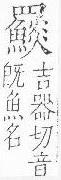 吉器切音
既魚名